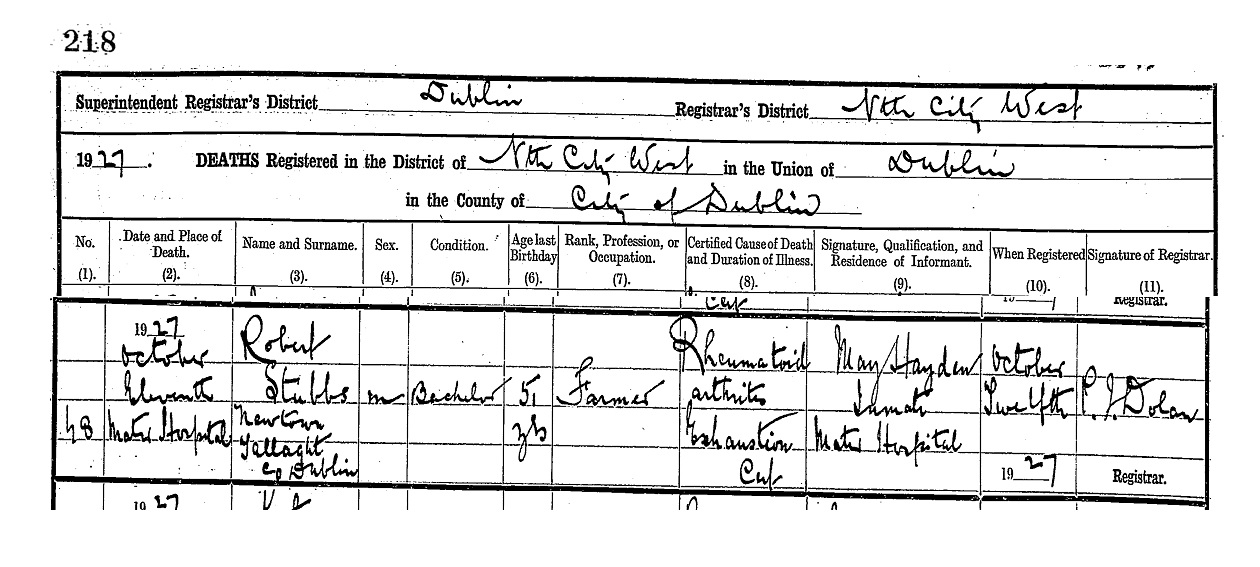 218
Superintendent Registrar's District Dublin Registrar's District Nth City West
1927. DEATHS Registered in the District of Nth City West in the Union of Dublin
in the County of City of Dublin
No. (1).
Date and Place of Death. (2).
Name and Surname. (3).
Sex. (4).
Condition. (5).
Age last Birthday (6).
Rank, Profession, or Occupation. (7).
Certified Cause of Death and Duration of Illness. (8).
Signature, Qualification, and Residence of Informant. (9).
When Registered (10).
Signature of Registrar. (11).
Cert
Registrar.
1927
October
Eleventh
Mater Hospital
Robert
Stubbs
Newtown
Tallaght
Co Dublin
m
Bachelor
51
yrs
Farmer
Rheumatoid
arthritis
Exhaustion
Cert
May Hayden
Inmate
Mater Hospital
October
Twelfth
1927
P. J. Dolan
Registrar.
1927